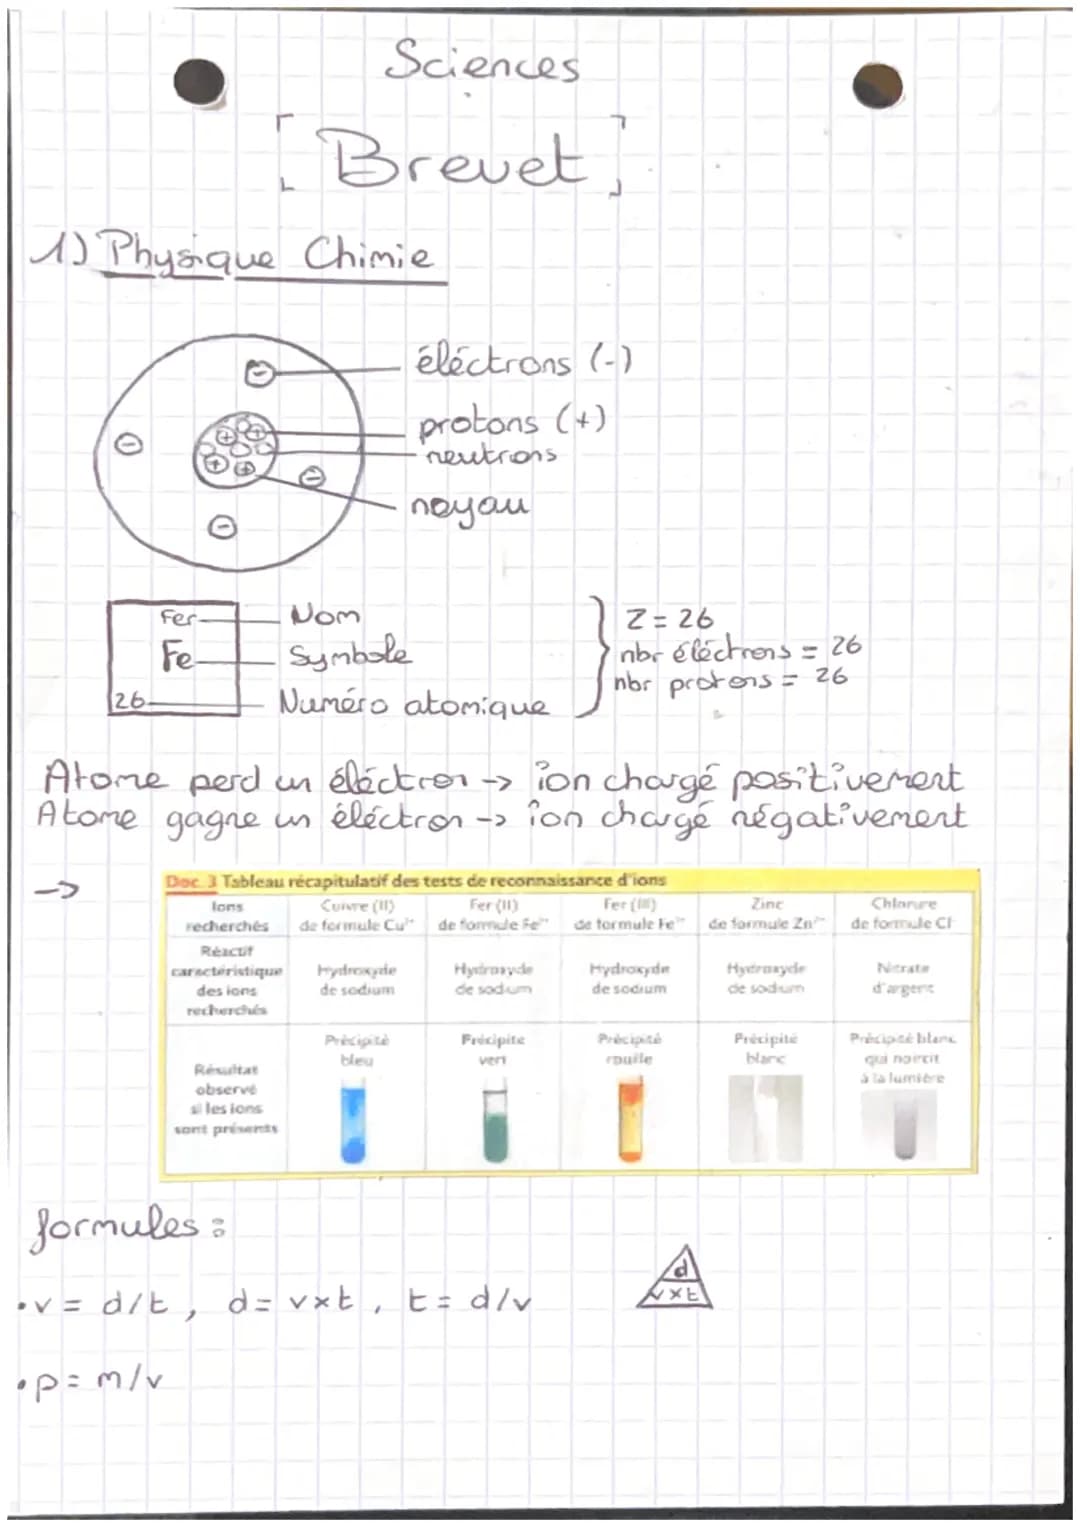 Sciences
[Brevet]
1) Physique Chimie
éléctrons (-)
protons (+)
neutrons
noyau
Fer
Nom
Fe
Symbole
26
Numéro atomique
Z = 26
nbr éléctrons = 26
nbr protons = 26
Atome perd un éléctron -> ion chargé positivement
Atome gagne un éléctron -> ion chargé négativement
->
Doc. 3 Tableau récapitulatif des tests de reconnaissance d'ions
Ions recherchés
Cuivre (II) de formule Cu²⁺
Fer (II) de formule Fe²⁺
Fer (III) de formule Fe
Zinc de formule Zn²⁺
Chlorure de formule Cl⁻
Réactif caractéristique des ions recherchés
Hydroxyde de sodium
Hydroxyde de sodium
Hydroxyde de sodium
Hydroxyde de sodium
Nitrate d'argent
Résultat observé si les ions sont présents
Précipité bleu
Précipité vert
Précipité rouille
Précipité blanc
Précipité blanc qui noircit à la lumière
formules :
• v = d/t, d = v×t, t = d/v
d
v×t
• p = m/v